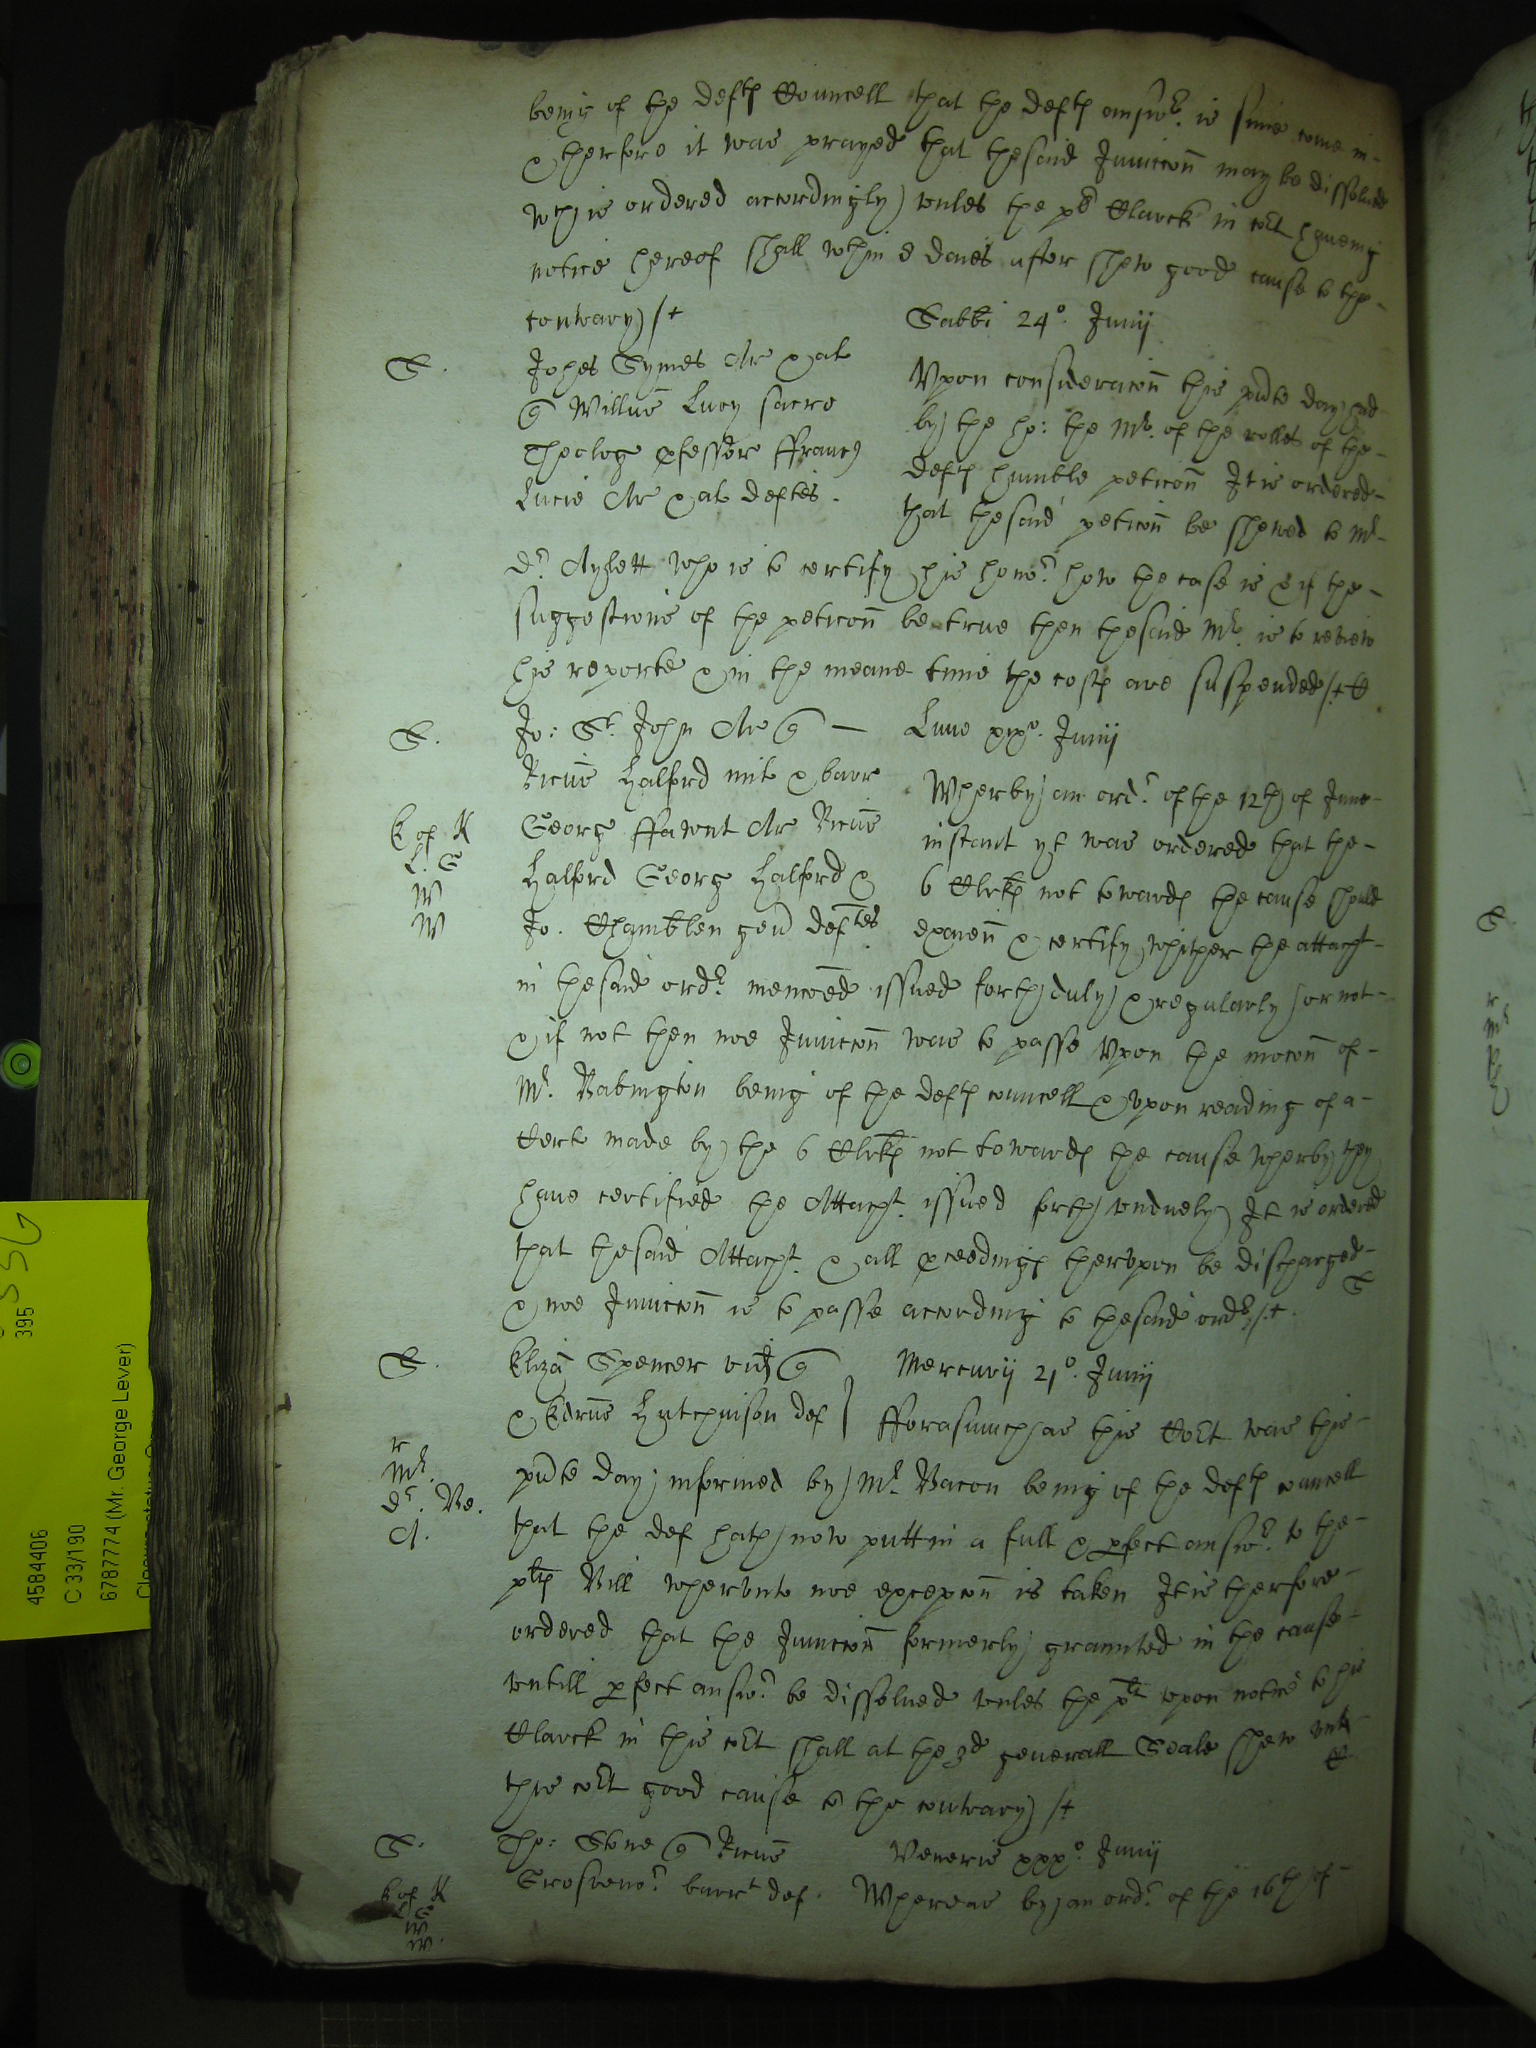 being of the deft Councell that the deft answr. is since come in
& therfore it was prayed that thesaid Iniuccon may be dissolued
wch is ordered accordingly vnles the plt Clarck in cort haueing
notice hereof shall wthin 8 daies after shew good cause to the
contrary /.
Sabbi 24o. Junij
S.
Johes Symes Ar & al
q Willm Lucy sacre
Theolog pfessor ffrancs
Lucie Ar & al deftes.
Vpon consideracon this pnte day had
by the ho: the Mr. of the rolles of the
deft humble peticon It is ordered
that thesaid peticon be shewed to Mr
Dr. Aylett who is to certify his honor. how the case is & if the
suggestions of the peticon be true then thesaid Mr. is to review
his reporte & in the meane time the costs are suspended /.
S.
Jo: St. John Ar q
Ricus Halford mil & barr
George ffawnt Ar Ricus
Halford Georg Halford &
Jo. Chamblen gen deftes
E of K
L. G
W
W
Lune xixo. Junij
Wherby an ordr. of the 12th of June
instant yt was ordered that the
6 Clrks not towards the cause should
examn & certify whither the attacht
in thesaid ordr. menconed issued forth duly & regularly or not
& if not then noe Iniuccon was to passe Vpon the mocon of
Mr. Babington being of the deft councell & vpon reading of a
Cert made by the 6 Clrks not towards the cause wherby they
haue certified the Attacht. issued forth vnduely It is ordered
that thesaid Attacht. & all pceedings thervpon be discharged
& noe Iniuccon is to passe according to thesaid ordr. /.
S
S.
Eliza Spencer vid q
& Edrus Hutchinson def
Mercurij 21o. Junij
fforasmuch as this Cort was this
r
Mr.
Dr. Be.
A.
pnte day informed by Mr. Bacon being of the deft councell
that the def hath now putt in a full & pfect answr. to the
plts Bill whervnto noe excepcon is taken It is therfore
ordered that the Iniuccon formerly graunted in the cause
vntill pfect answr. be dissolued vnles the plt vpon notice to his
Clarck in this cort shall at the 3d generall Seale shew vnto
this cort good cause to the contrary /.
S.
Tho: Stone q Ricus
Grosvenor. barrt def.
E of K
L G
W
W.
Veneris xxxo. Junij
Whereas by an ordr. of the 16th of
395
4584406
C 33/190
6787774 (Mr. George Lever)